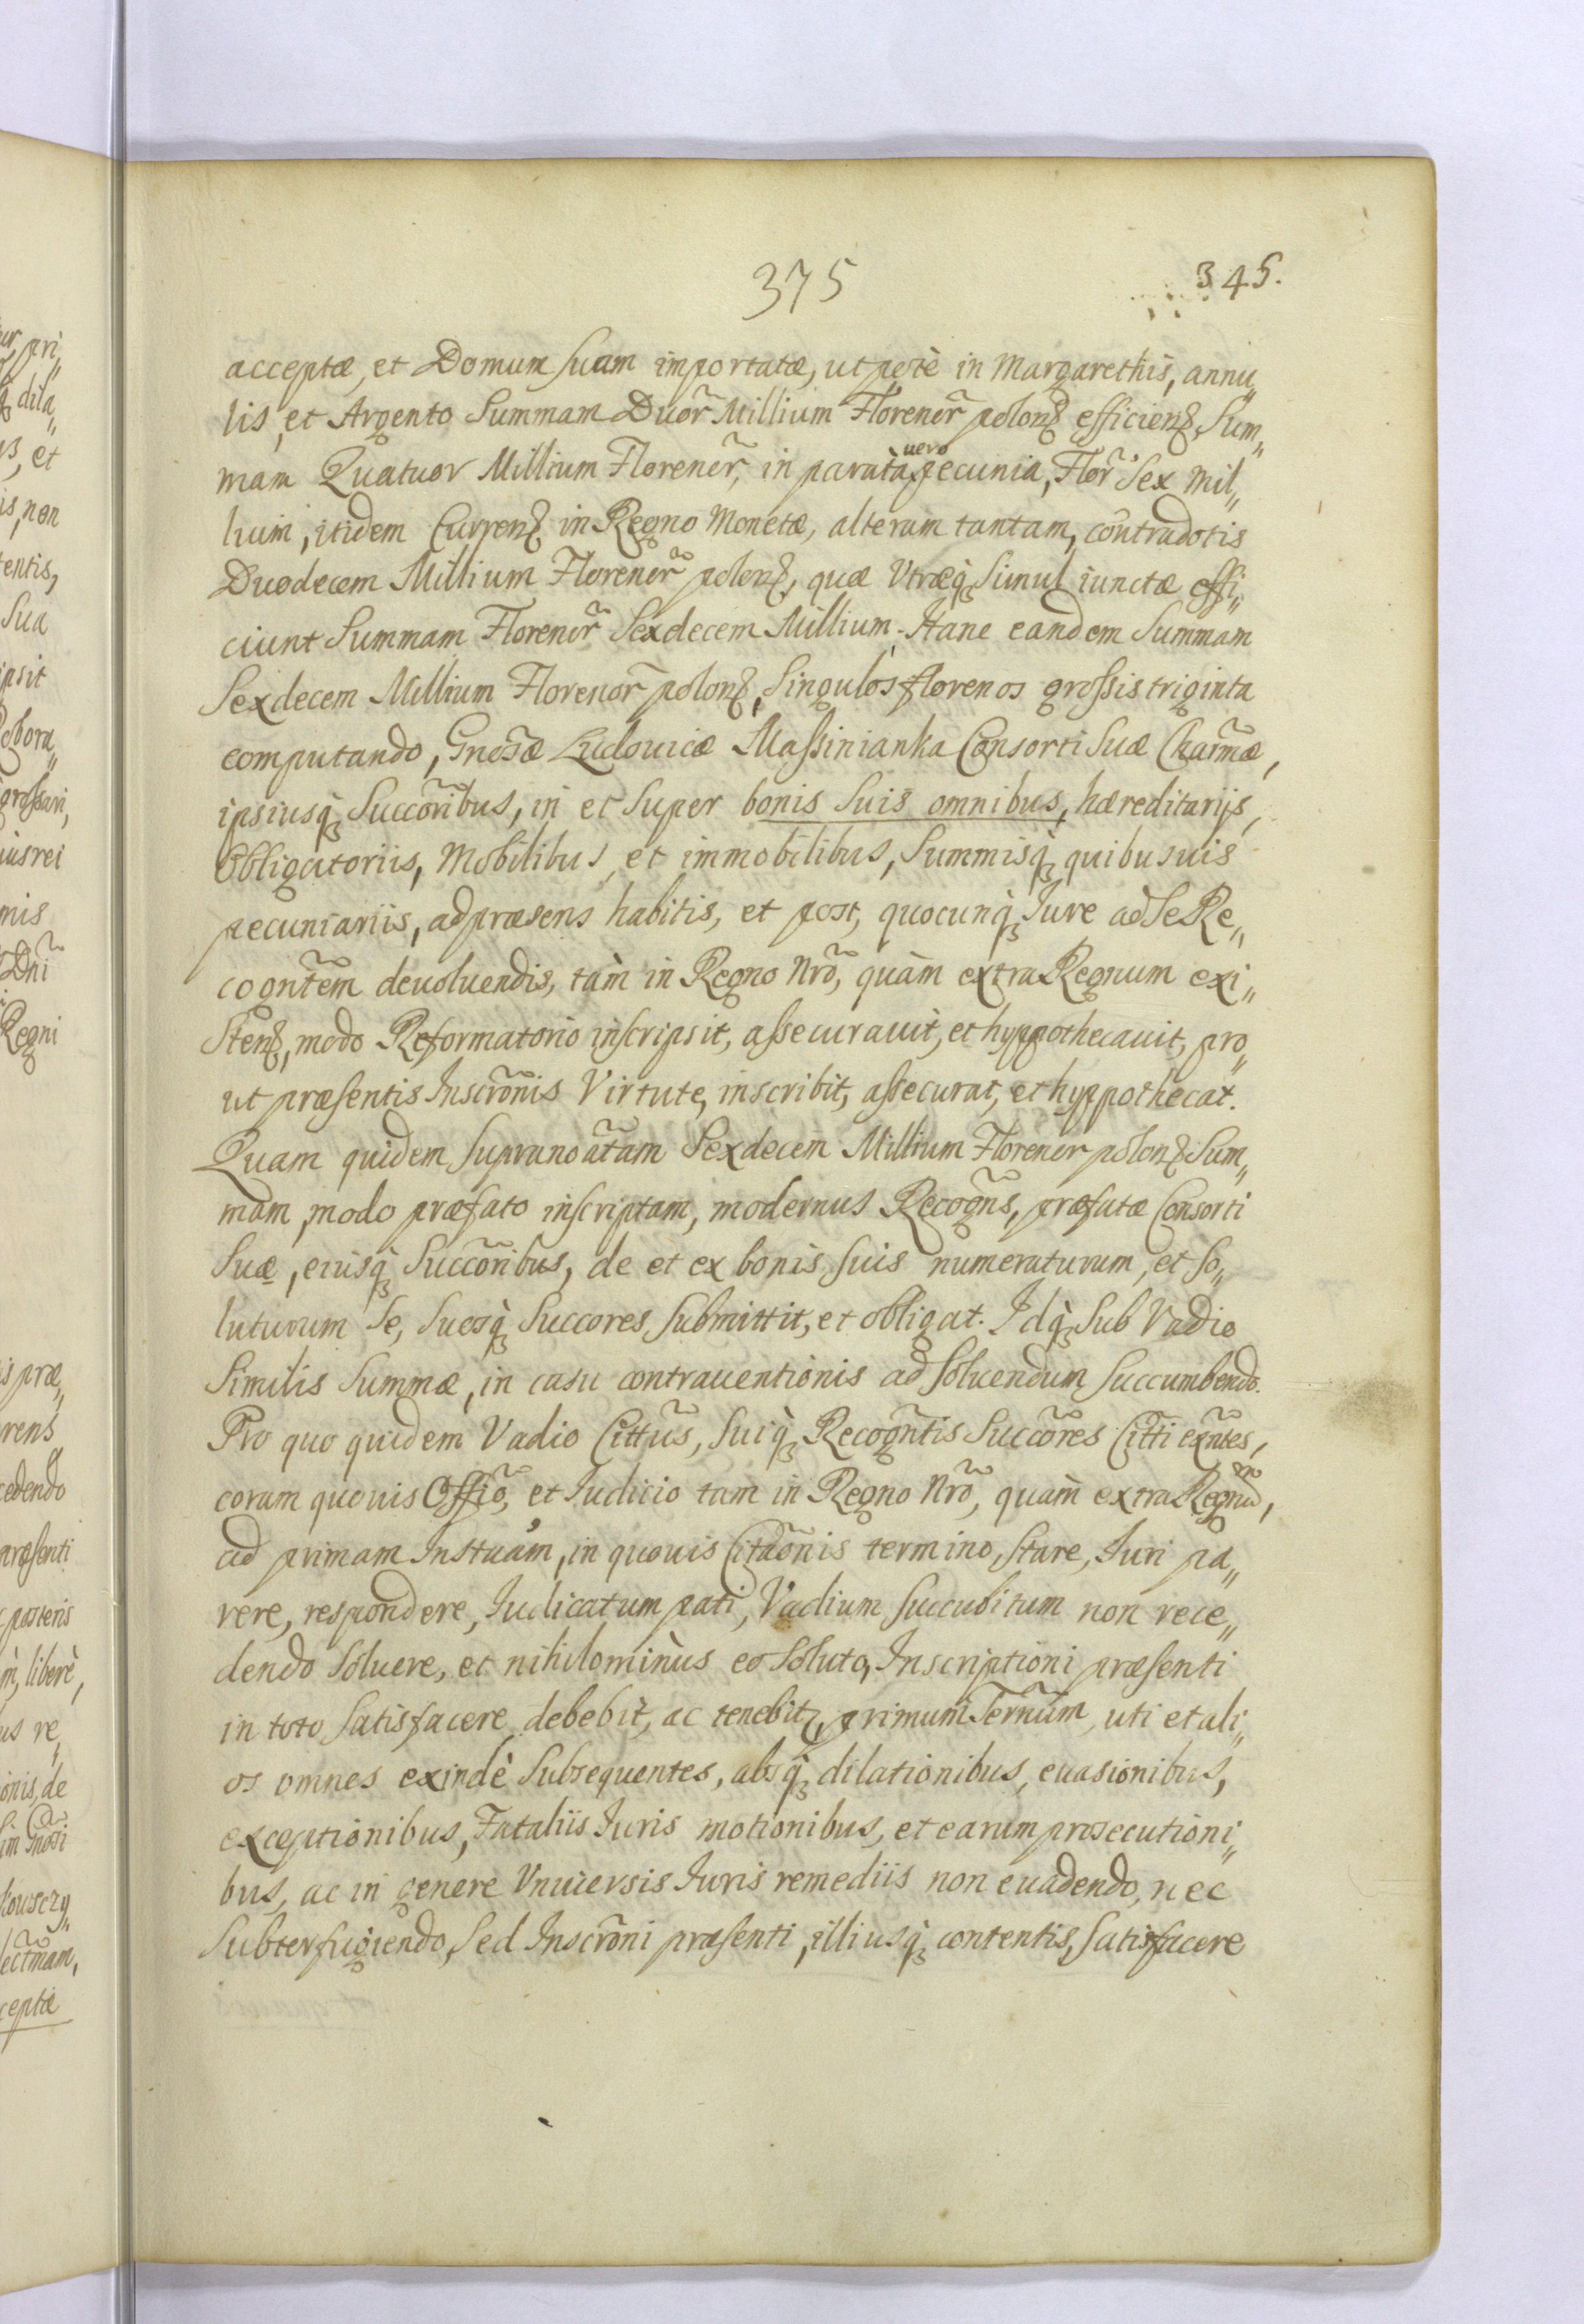 375
345.
acceptæ, et Domum suam importatæ, ut potè in Margarethis, annu„
lis, et Argento Summam Duor̃ Millium Florenor̃ polonꝫ efficienꝫ, Sum„
mam Quatuor Millium Florenor̃, in paratà uero pecunia, Flor̃ Sex Mil„
lium, itidem Currenꝫ in Regno Monetæ, alteram tantam, contradotis
Duodecem Millium Florenor̃ polonꝫ, quæ Vtræqꝫ Simul iunctæ effi„
ciunt Summam Florenor̃ Sexdecem Millium. Hanc eandem Summam
Sexdecem Millium Florenor̃ polonꝫ, Singulos florenos grossis triginta
computando, Gnosæ Ludouicæ Massinianka Consorti Suæ Char̃mæ,
ipsiusqꝫ Succõribus, in et Super bonis Suis omnibus, hæreditarijs,
Obligatoriis, Mobilibus, et immobilibus, Summisqꝫ quibusuis
pecuniariis, ad præsens habitis, et post, quocunqꝫ Iure ad Se Re„
cogñtem deuoluendis, tàm in Regno Nrõ, quàm extra Regnum exi„
Stenꝫ, modo Reformatorio inscripsit, assecurauit, et hyppothecauit, pro„
ut præsentis Inscrõnis Virtute, inscribit, assecurat, et hyppothecat.
Quam quidem Supranoãtam Sexdecem Millium Florenor polonꝫ Sum„
mam, modo præfato inscriptam, modernus Recogñs, præfatæ Consorti
Suæ, eiusqꝫ Succõribus, de et ex bonis suis numeraturum, et So„
luturum Se, Suosqꝫ Succores Submittit, et obligat. Idqꝫ Sub Vadio
Similis Summæ, in casu contrauentionis ad Soluendum Succumbendo.
Pro quo quidem Vadio Cittũs, Suiqꝫ Recogñtis Succõres Citti exñtes,
coram quouis Offiõ, et Iudicio tam in Regno Nrõ, quàm extra Regnũ,
ad primam Instuam, in quouis Citãonis termino, Stare, Iuri pa„
rere, respondere, Iudicatum pati, Vadium Succubitum non rece„
dendo Soluere, et nihilominùs eo Soluto, Inscriptioni præsenti
in toto Satisfacere, debebit, ac tenebitꝫ, primum Ter̃num, uti et ali„
os omnes exindè Subsequentes, absqꝫ dilationibus, euasionibus,
exceptionibus, Fataliis Iuris motionibus, et earum prosecutioni„
bus, ac in genere Vniuersis Iuris remediis non euadendo, nec
Subterfugiendo, Sed Inscrõni præsenti, illiusqꝫ contentis, Satisfacere